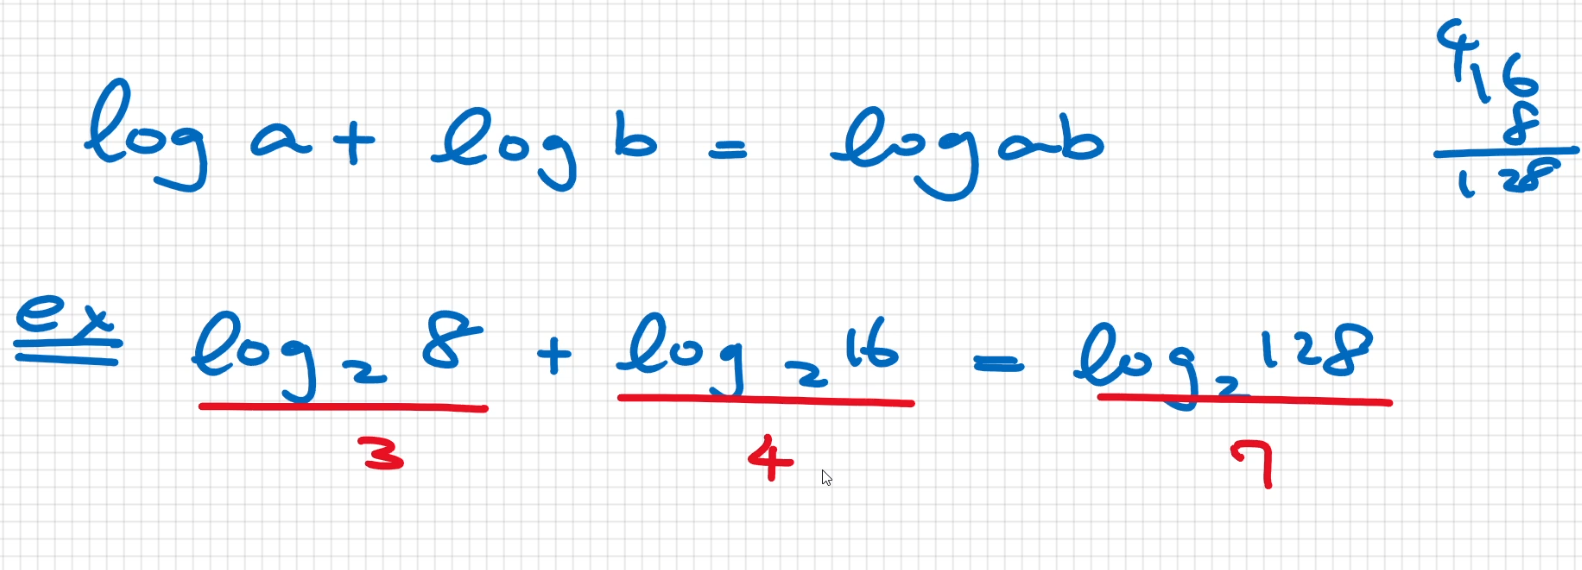 log a + log b = log ab
4
16
8
128
ex log₂ 8 + log₂ 16 = log₂ 128
3 4 7